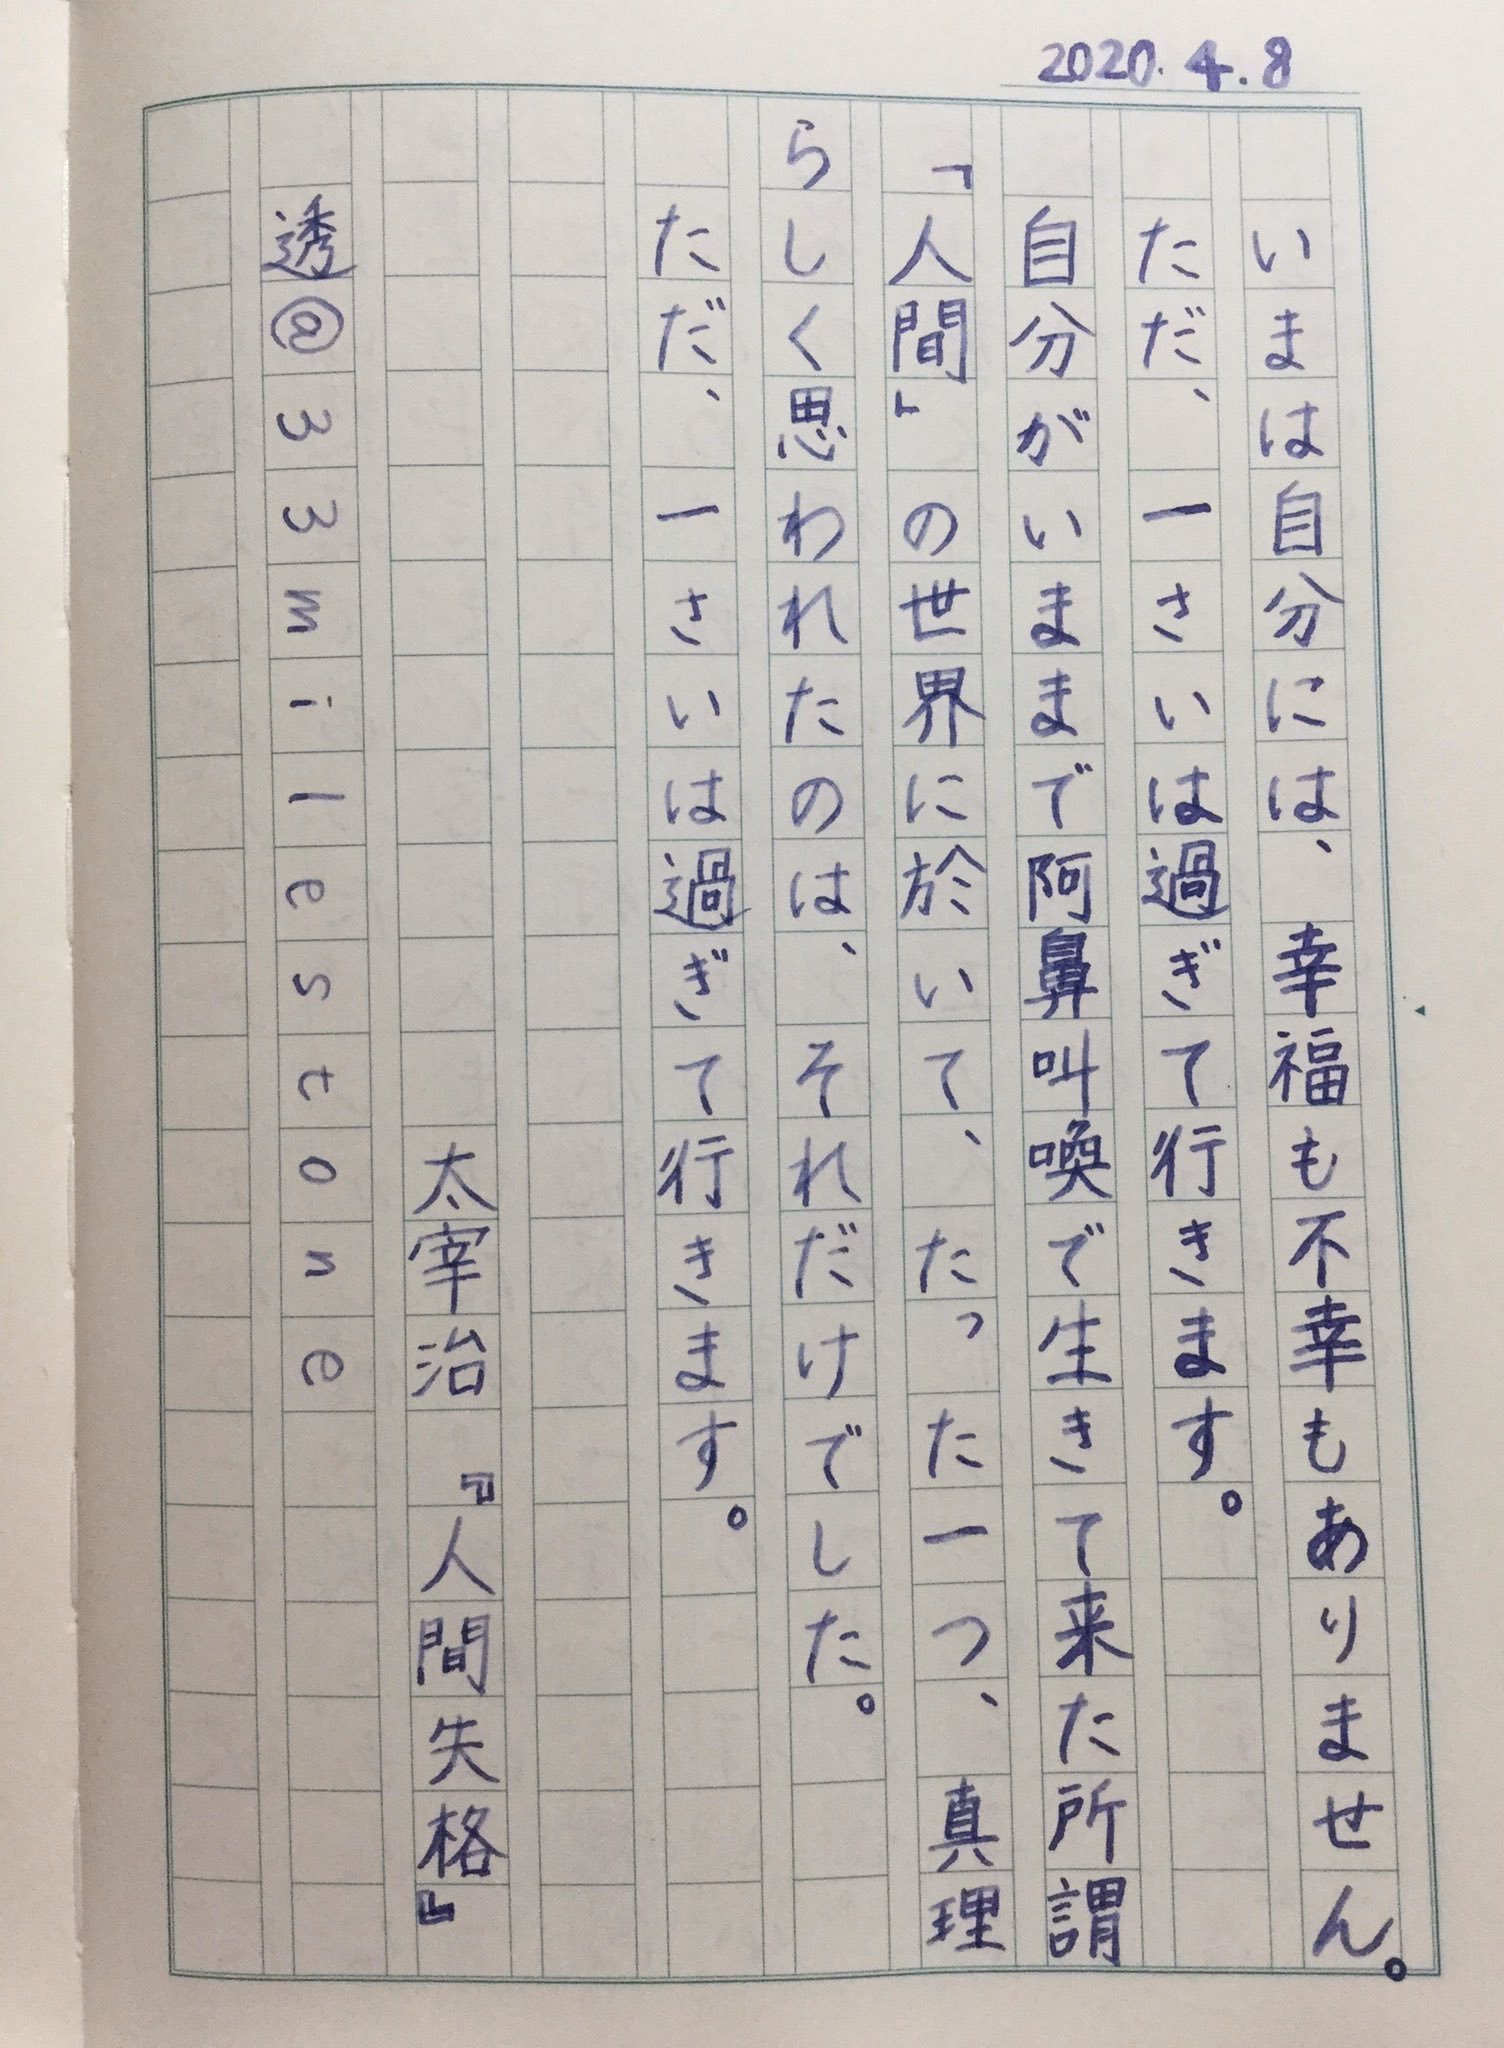 2020.4.8
いまは自分には、幸福も不幸もありません。
ただ、一さいは過ぎて行きます。
自分がいままで阿鼻叫喚で生きて来た所謂
「人間」の世界に於いて、たった一つ、真理
らしく思われたのは、それだけでした。
ただ、一さいは過ぎて行きます。
太宰治『人間失格』
透@33milestone